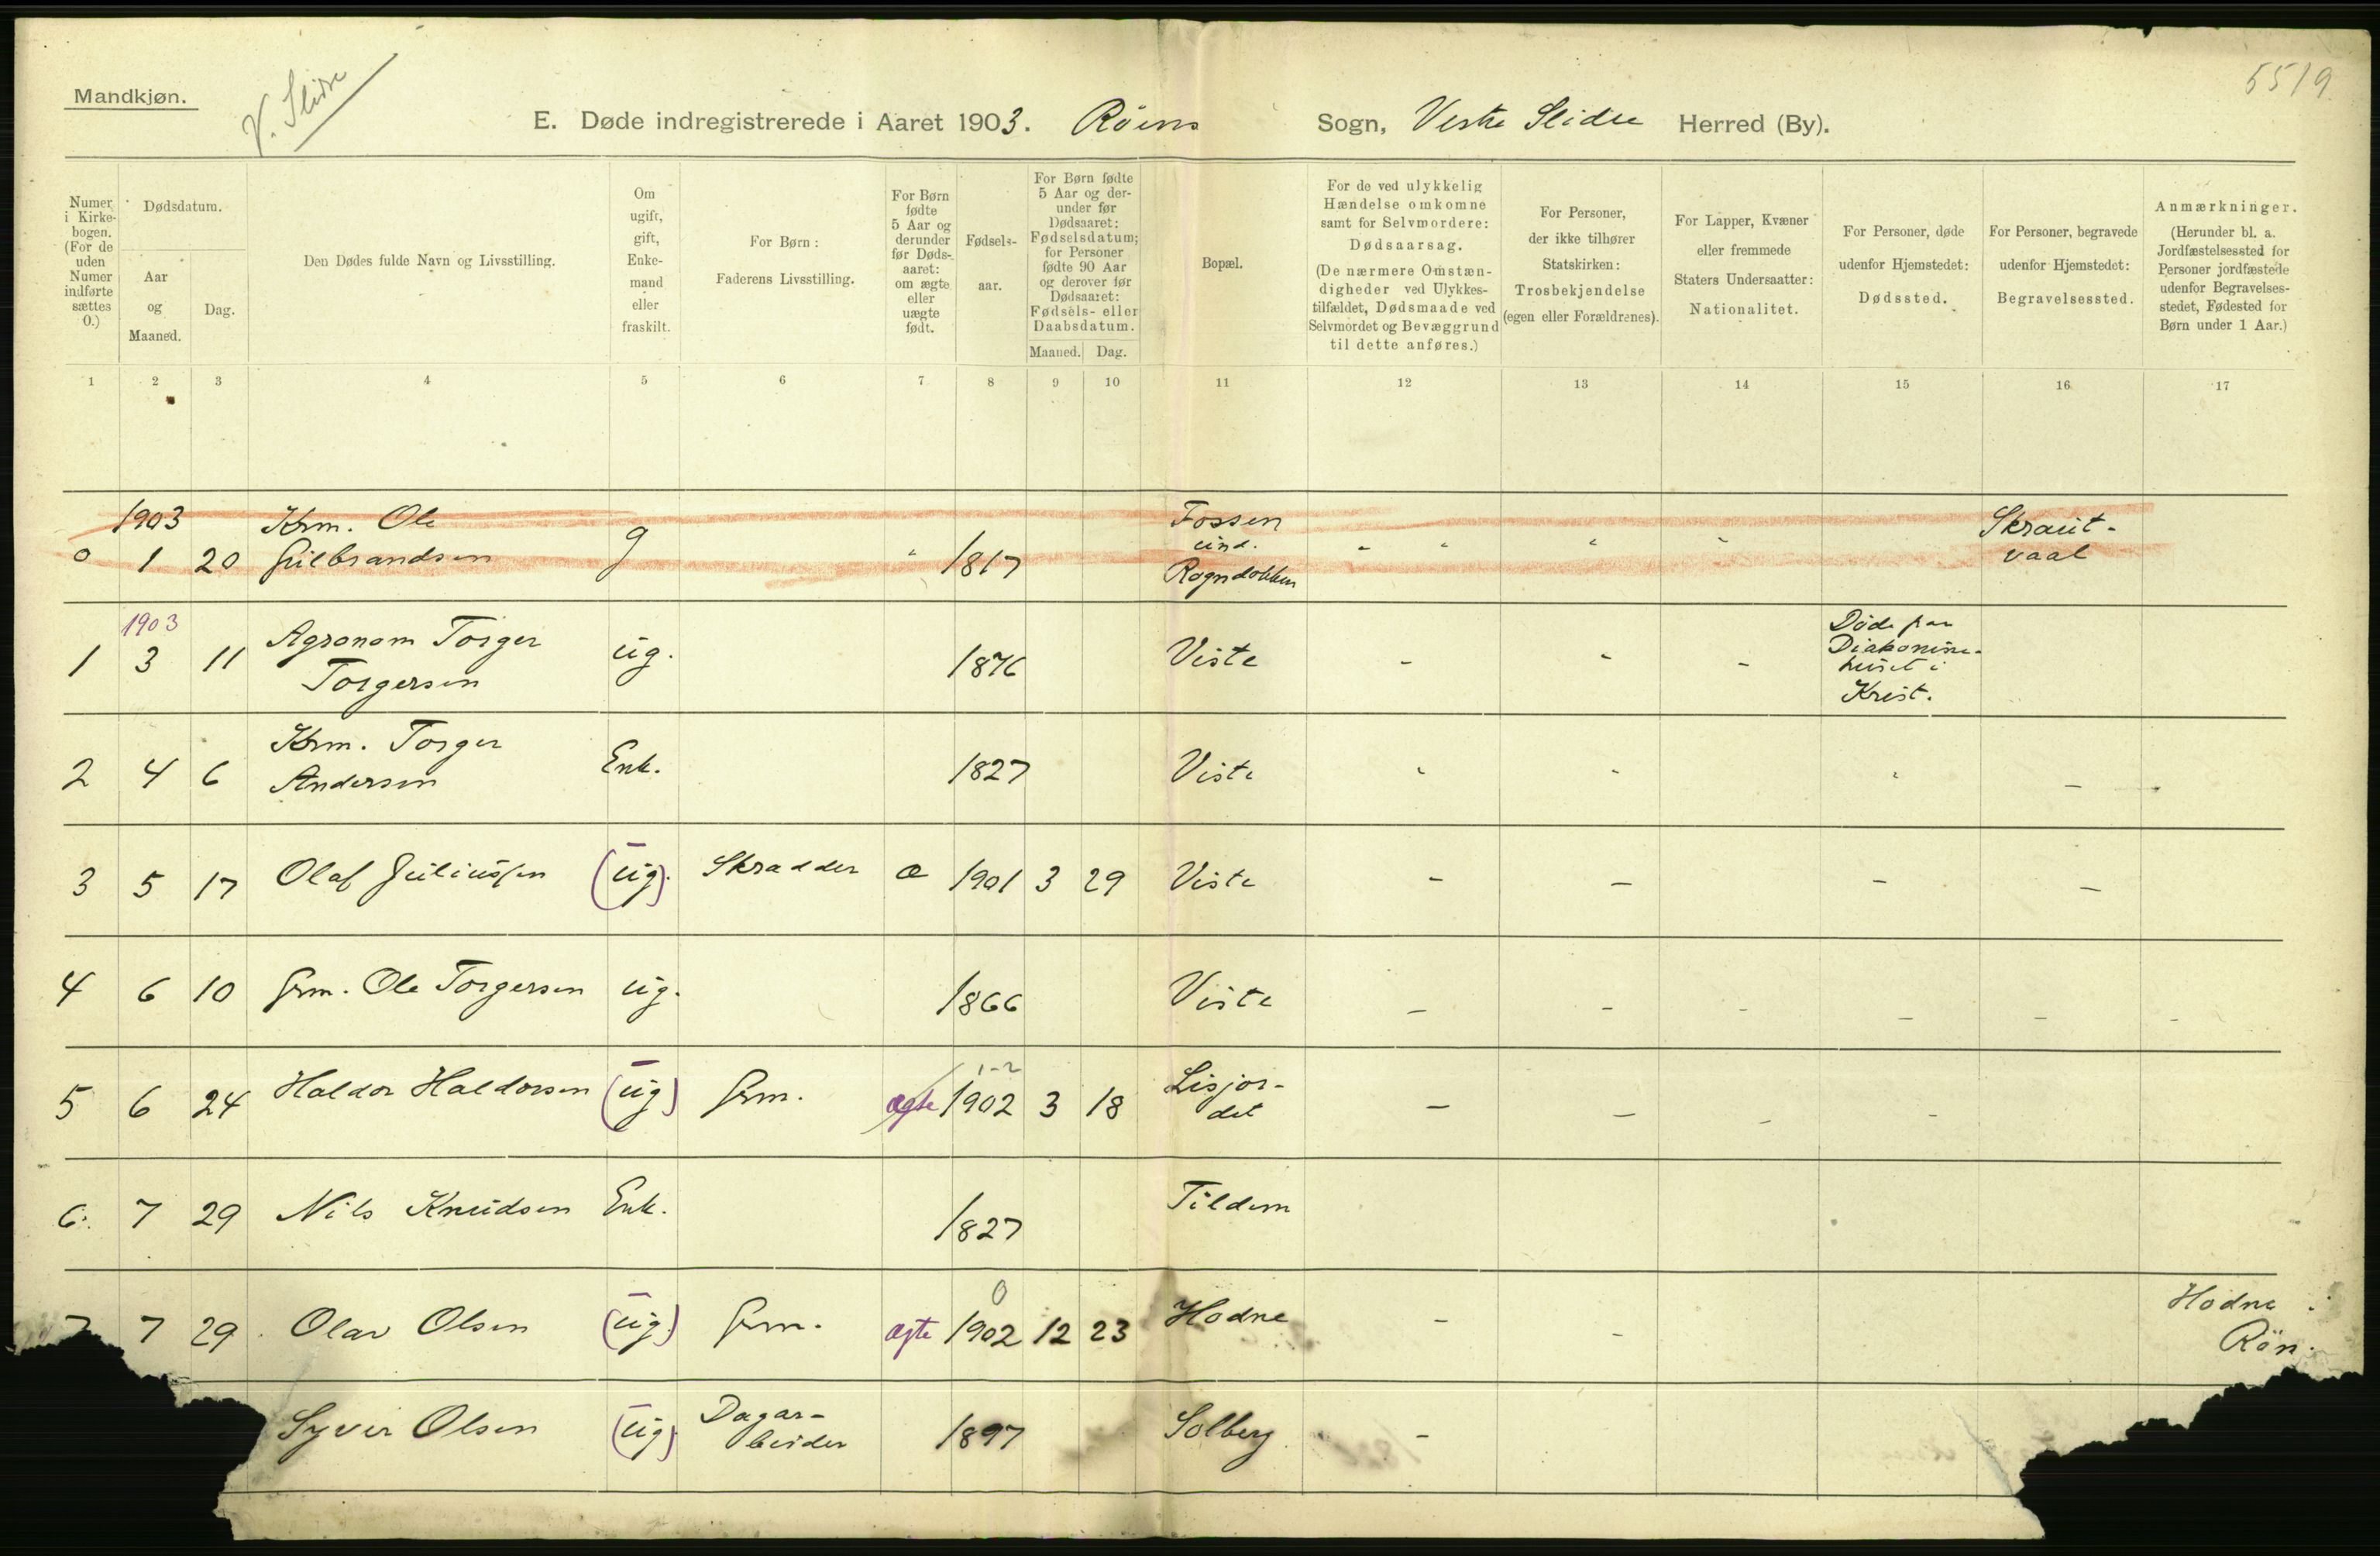 Mandkjøn.
V. Slidre
5519
E. Døde indregistrerede i Aaret 1903. Röens Sogn, Vestre Slidre Herred (By).
Numer i Kirke-bogen. (For de uden Numer indførte sættes 0.)
Dødsdatum.
Aar og Maaned.
Dag.
Den Dødes fulde Navn og Livsstilling.
Om ugift, gift, Enke-mand eller fraskilt.
For Børn: Faderens Livsstilling.
For Børn fødte 5 Aar og derunder før Døds-aaret: om ægte eller uægte født.
Fødsels-aar.
For Børn fødte 5 Aar og der-under før Dødsaaret: Fødselsdatum; for Personer fødte 90 Aar og derover før Dødsaaret: Fødsels- eller Daabsdatum.
Maaned. Dag.
Bopæl.
For de ved ulykkelig Hændelse omkomne samt for Selvmordere: Dødsaarsag. (De nærmere Omstæn-digheder ved Ulykkes-tilfældet, Dødsmaade ved Selvmordet og Bevæggrund til dette anføres.)
For Personer, der ikke tilhører Statskirken: Trosbekjendelse (egen eller Forældrenes).
For Lapper, Kvæner eller fremmede Staters Undersaatter: Nationalitet.
For Personer, døde udenfor Hjemstedet: Dødssted.
For Personer, begravede udenfor Hjemstedet: Begravelsessted.
Anmærkninger. (Herunder bl. a. Jordfæstelsessted for Personer jordfæstede udenfor Begravelses-stedet, Fødested for Børn under 1 Aar.)
1 2 3 4 5 6 7 8 9 10 11 12 13 14 15 16 17
1903 Krm. Ole Fossen Skraut-
0 1 20 Gulbrandsen g 1817 und. vaal
Rogndokken
1903 Agronom Torger Døde paa
1 3 11 Torgersen ug. 1876 Viste - - - Diakonisse-
huset i
Krist.
Krm. Torger
2 4 6 Andersen Enk. 1827 Viste - - - -
3 5 17 Olaf Juliussen (ug). Skrædder æ 1901 3 29 Viste - - - -
4 6 10 Grm. Ole Torgersen ug. 1866 Viste - - - - - -
1-2
5 6 24 Haldor Haldorsen (ug) Grm. ægte 1902 3 18 Lisjor-
det - - - -
6. 7 29 Nils Knudsen Enk. 1827 Tildem
0
7 7 29. Olav Olsen (ug.) Grm. ægte 1902 12 23 Hodne - - Hodne i
Rön.
Syver Olsen (ug) Dagar-
beider 1897 Solberg -